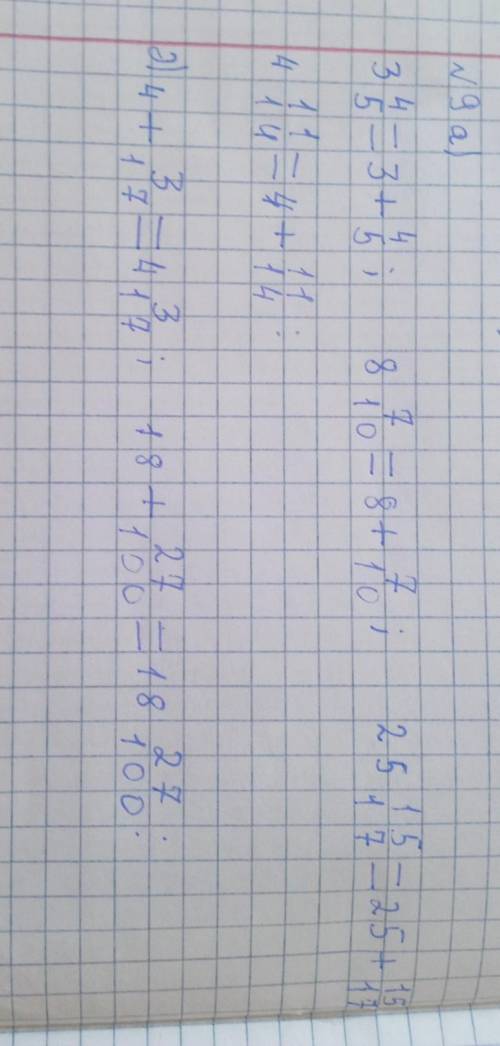 №9 а)
3 4/5 = 3 + 4/5; 8 7/10 = 8 + 7/10; 25 15/17 = 25 + 15/17
4 11/14 = 4 + 11/14;
д) 4 + 3/17 = 4 3/17; 18 + 27/100 = 18 27/100;